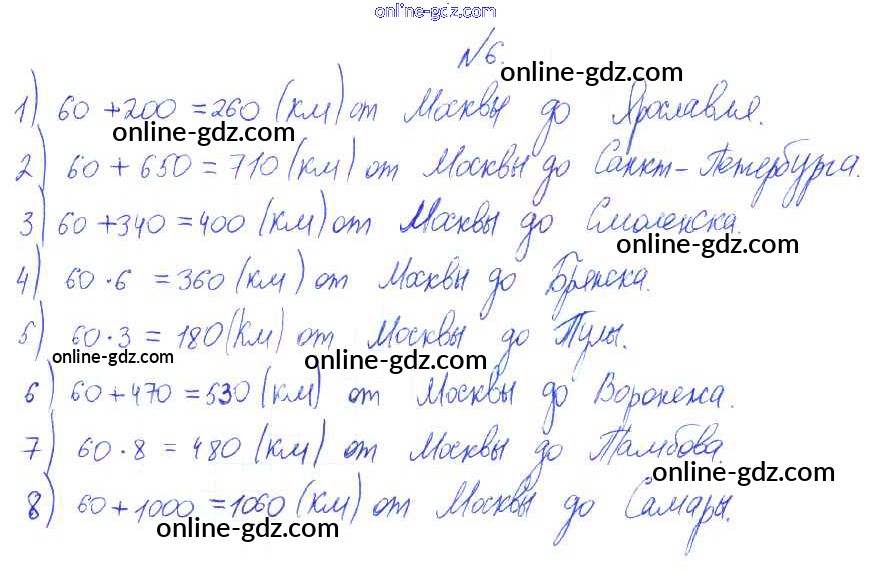 online-gdz.com
№6.
online-gdz.com
1) 60 + 200 = 260 (км) от Москвы до Ярославля.
online-gdz.com
2) 60 + 650 = 710 (км) от Москвы до Санкт-Петербурга.
3) 60 + 340 = 400 (км) от Москвы до Смоленска.
online-gdz.com
4) 60 · 6 = 360 (км) от Москвы до Брянска.
5) 60 · 3 = 180 (км) от Москвы до Тулы.
online-gdz.com
online-gdz.com
6) 60 + 470 = 530 (км) от Москвы до Воронежа.
online-gdz.com
7) 60 · 8 = 480 (км) от Москвы до Тамбова.
online-gdz.com
8) 60 + 1000 = 1060 (км) от Москвы до Самары.
online-gdz.com